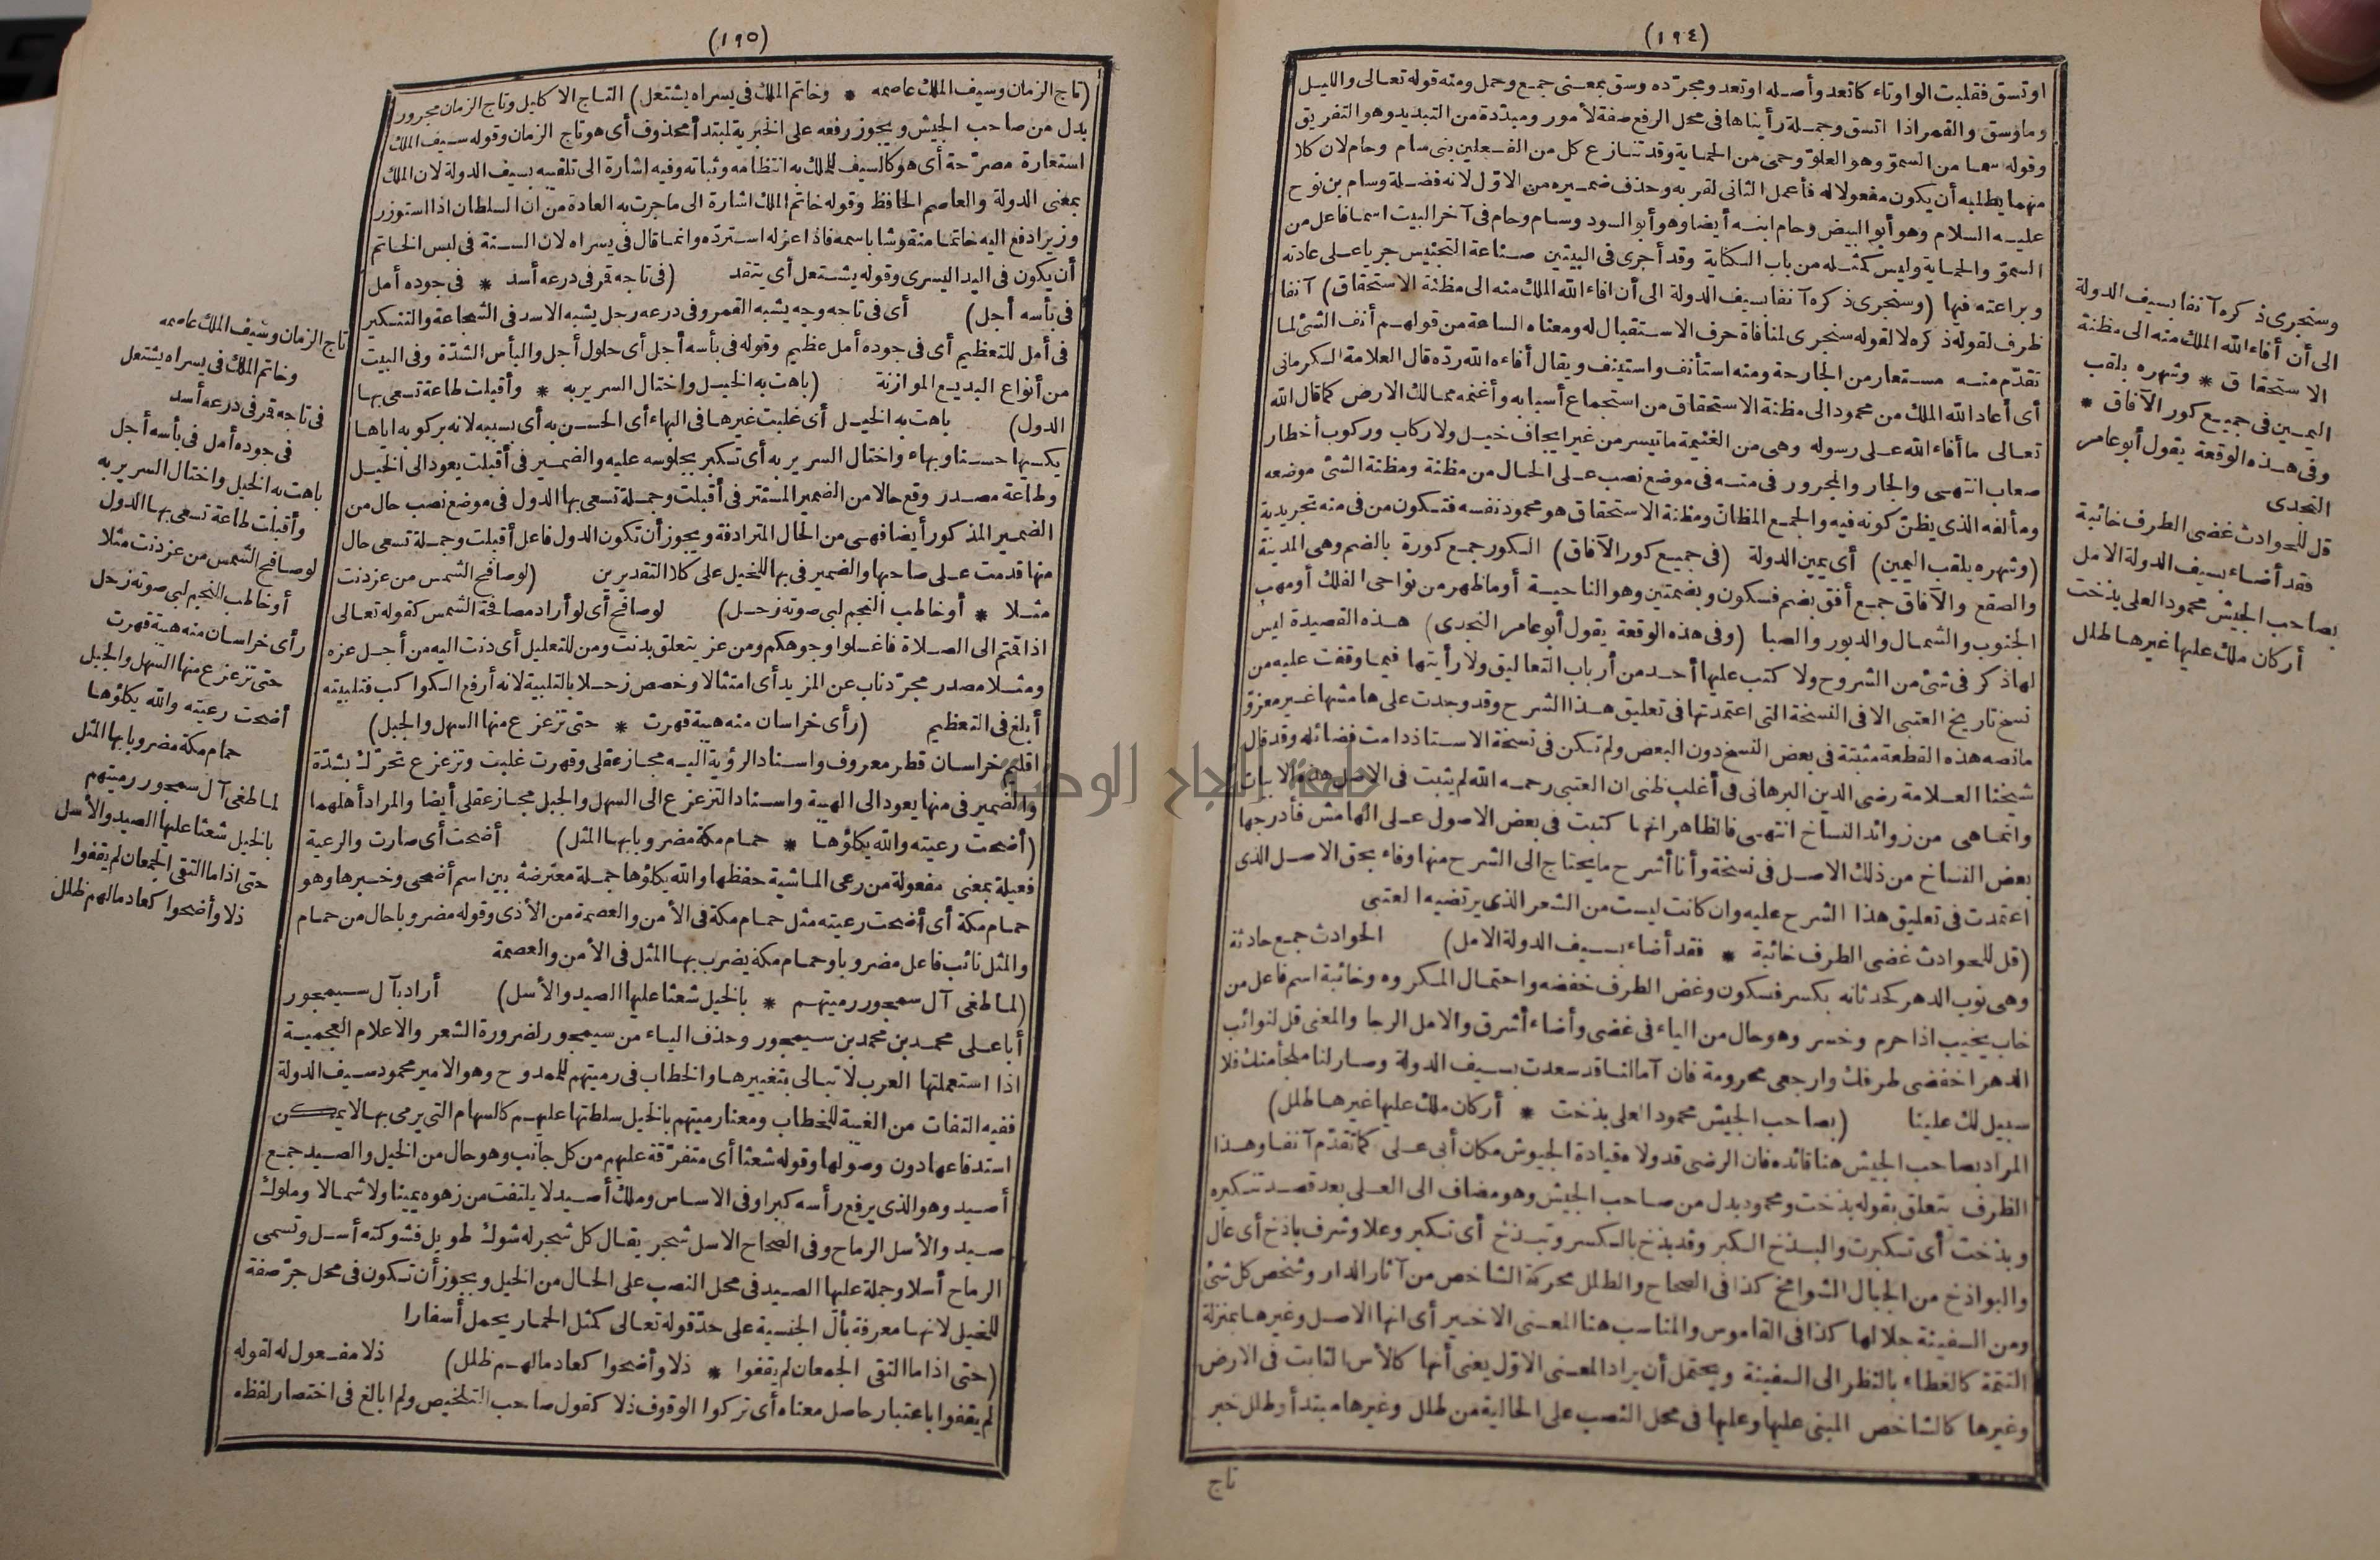 (١٩٤)
اوتسق فقلبت الواو تاء كاتعد وأصله اوتعد ومجرّده وسق بمعنى جمع وحمل ومنه قوله تعالى والليل
وما وسق والقمر اذا اتسق وجملة رأيناها في محل الرفع صفة لأمور ومبددة من التبديد وهو التفريق
وقوله سما من السمو وهو العلوّ وحمى من الحماية وقد تنازع كل من الفعلين بنى سام وحام لان كلا
منهما يطلبه أن يكون مفعولا له فأعمل الثانى لقربه وحذف ضميره من الاوّل لانه فضلة وسام بن نوح
عليه السلام وهو أبو البيض وحام ابنه أيضا وهو أبو السود وسام وحام في آخر البيت اسما فاعل من
السموّ والحماية وليس كمثله من باب الكناية وقد أجرى في البيتين صناعة التجنيس جريا على عادته
وبراعته فيها (وسنجرى ذكره آنفا بسيف الدولة الى أن افاء الله الملك منه الى مظنة الاستحقاق) آنفا
ظرف لقوله ذكره لا لقوله سنجرى لمنافاة حرف الاستقبال له ومعناه الساعة من قولهم أنف الشئ لما
تقدّم منه مستعار من الجارحة ومنه استأنف واستينف ويقال أفاءه الله ردّه قال العلامة الكرمانى
أى أعاد الله الملك من محمود الى مظنة الاستحقاق من استجماع أسبابه وأغنمه ممالك الارض كما قال الله
تعالى ما أفاء الله على رسوله وهى من الغنيمة ما تيسر من غير ايجاف خيل ولا ركاب وركوب أخطار
صعاب انتهى والجار والمجرور في منه في موضع نصب على الحال من مظنة ومظنة الشئ موضعه
ومألفه الذى يظنّ كونه فيه والجمع المظانّ ومظنة الاستحقاق هو محمود نفسه فتكون من في منه تجريدية
(وشهره بلقب اليمين) أى يمين الدولة (في جميع كور الآفاق) الكور جمع كورة بالضم وهى المدينة
والصقع والآفاق جمع أفق بضم فسكون وبضمتين وهو الناحية أو ما ظهر من نواحى الفلك أو مهب
الجنوب والشمال والدبور والصبا (وفى هذه الوقعة يقول أبو عامر النجدى) هذه القصيدة ليس
لها ذكر في شئ من الشروح ولا كتب عليها أحد من أرباب التعاليق ولا رأيتها فيما وقفت عليه من
نسخ تاريخ العتبى الا في النسخة التى اعتمدتها في تعليق هذا الشرح وقد وجدت على هامشها غير معزوّ
مانصه هذه القطعة مثبتة في بعض النسخ دون البعض ولم تكن في نسخة الاستاذ دامت فضائله وقد قال
شيخنا العلامة رضى الدين البرهانى في أغلب ظنى ان العتبى رحمه الله لم يثبت في الاصل هذه الابيات
وانما هى من زوائد النساخ انتهى فالظاهر انها كتبت في بعض الاصول على الهامش فأدرجها
بعض النساخ من ذلك الاصل في نسخة وأنا أشرح ما يحتاج الى الشرح منها وفاء بحق الاصل الذى
اعتمدت في تعليق هذا الشرح عليه وان كانت ليست من الشعر الذى يرتضيه العتبى
(قل للحوادث غضى الطرف خائبة * فقد أضاء بسيف الدولة الامل) الحوادث جمع حادثة
وهى نوب الدهر كحدثانه بكسر فسكون وغض الطرف خفضه واحتمال المكروه وخائبة اسم فاعل من
خاب يخيب اذا حرم وخسر وهو حال من الياء في غضى وأضاء أشرق والامل الرجا والمعنى قل لنوائب
الدهر اخفضى طرفك وارجعى محرومة فان آمالنا قد سعدت بسيف الدولة وصار لنا ملجأ منك فلا
سبيل لك علينا (بصاحب الجيش محمود العلى بذخت * أركان ملك عليها غيرها طلل)
المراد بصاحب الجيش هنا قائده فان الرضى قد ولاه قيادة الجيوش مكان أبى على كما تقدّم آنفا وهذا
الظرف يتعلق بقوله بذخت ومحمود بدل من صاحب الجيش وهو مضاف الى العلى بعد قصد تنكيره
وبذخت أى تكبرت والبذخ الكبر وقد بذخ بالكسر وتبذخ أى تكبر وعلا وشرف باذخ أى عال
والبواذخ من الجبال الشوامخ كذا في الصحاح والطلل محركة الشاخص من آثار الدار وشخص كل شئ
ومن السفينة جلالها كذا في القاموس والمناسب هنا المعنى الاخير أى انها الاصل وغيرها بمنزلة
التتمة كالغطاء بالنظر الى السفينة ويحتمل أن يراد المعنى الاوّل يعنى أنها كالأس الثابت في الارض
وغيرها كالشاخص المبنى عليها وعليها في محل النصب على الحالية من طلل وغيرها مبتدأ وطلل خبر
تاج
وسنجرى ذكره آنفا بسيف الدولة
الى أن أفاء الله الملك منه الى مظنة
الاستحقاق * وشهره بلقب
اليمين في جميع كور الآفاق *
وفى هذه الوقعة يقول أبو عامر
النجدى
قل للحوادث غضى الطرف خائبة
فقد أضاء بسيف الدولة الامل
بصاحب الجيش محمود العلى بذخت
أركان ملك عليها غيرها طلل
(١٩٥)
(تاج الزمان وسيف الملك عاصمه * وخاتم الملك في يسراه يشتعل) التاج الاكليل وتاج الزمان مجرور
بدل من صاحب الجيش ويجوز رفعه على الخبرية لمبتدأ محذوف أى هو تاج الزمان وقوله سيف الملك
استعارة مصرّحة أى هو كالسيف للملك به انتظامه وثباته وفيه اشارة الى تلقيبه بسيف الدولة لان الملك
بمعنى الدولة والعاصم الحافظ وقوله خاتم الملك اشارة الى ما جرت به العادة من ان السلطان اذا استوزر
وزيرا دفع اليه خاتما منقوشا باسمه فاذا عزله استردّه وانما قال في يسراه لان السنة في لبس الخاتم
أن يكون في اليد اليسرى وقوله يشتعل أى يتقد (في تاجه قمر في درعه أسد * في جوده أمل
في بأسه أجل) أى في تاجه وجه يشبه القمر وفى درعه رجل يشبه الاسد في الشجاعة والتنكير
في أمل للتعظيم أى في جوده أمل عظيم وقوله في بأسه أجل أى حلول أجل والبأس الشدّة وفى البيت
من أنواع البديع الموازنة (باهت به الخيل واختال السرير به * وأقبلت طاعة تسعى بها
الدول) باهت به الخيل أى غلبت غيرها في البهاء أى الحسن به أى بسببه لانه بركوبه اياها
يكسبها حسنا وبهاء واختال السرير به أى تكبر بجلوسه عليه والضمير في أقبلت يعود الى الخيل
وطاعة مصدر وقع حالا من الضمير المستتر في أقبلت وجملة تسعى بها الدول في موضع نصب حال من
الضمير المذكور أيضا فهى من الحال المترادفة ويجوز أن تكون الدول فاعل أقبلت وجملة تسعى حال
منها قدمت على صاحبها والضمير في بها للخيل على كلا التقديرين (لو صافح الشمس من عز دنت
مثلا * أو خاطب النجم لبى صوته زحل) لو صافح أى لو أراد مصافحة الشمس كقوله تعالى
اذا قمتم الى الصلاة فاغسلوا وجوهكم ومن عز يتعلق بدنت ومن للتعليل أى دنت اليه من أجل عزه
ومثلا مصدر مجرّد ناب عن المزيد أى امتثالا وخصص زحلا بالتلبية لانه أرفع الكواكب فتلبيته
أبلغ في التعظيم (رأى خراسان منه هيبة قهرت * حتى تزعزع منها السهل والجبل)
اقليم خراسان قطر معروف واسناد الرؤية اليه مجاز عقلى وقهرت غلبت وتزعزع تحرّك بشدّة
والضمير في منها يعود الى الهيبة واسناد التزعزع الى السهل والجبل مجاز عقلى أيضا والمراد أهلهما
(أضحت رعيته والله يكلؤها * حمام مكة مضروبا بها المثل) أضحت أى صارت والرعية
فعيلة بمعنى مفعولة من رعى الماشية حفظها والله يكلؤها جملة معترضة بين اسم أضحى وخبرها وهو
حمام مكة أى أضحت رعيته مثل حمام مكة في الأمن والعصمة من الأذى وقوله مضروبا حال من حمام
والمثل نائب فاعل مضروبا وحمام مكة يضرب بها المثل في الأمن والعصمة
(لما طغى آل سمجور رميتهم * بالخيل شعثا عليها الصيد والأسل) أراد بآل سيمجور
أبا على محمد بن محمد بن سيمجور وحذف الياء من سيمجور لضرورة الشعر والاعلام العجمية
اذا استعملتها العرب لا تبالى بتغييرها والخطاب في رميتهم للممدوح وهو الامير محمود سيف الدولة
ففيه التفات من الغيبة للخطاب ومعنا رميتهم بالخيل سلطتها عليهم كالسهام التى يرمى بها لا يمكن
استدفاعها دون وصولها وقوله شعثا أى متفرّقة عليهم من كل جانب وهو حال من الخيل والصيد جمع
أصيد وهو الذى يرفع رأسه كبرا وفى الاساس وملك أصيد لا يلتفت من زهوه يمينا ولا شمالا وملوك
صيد والأسل الرماح وفى الصحاح الاسل شجر يقال كل شجر له شوك طويل فشوكته أسل وتسمى
الرماح أسلا وجملة عليها الصيد في محل النصب على الحال من الخيل ويجوز أن تكون في محل جرّ صفة
للخيل لانها معرفة بأل الجنسية على حدّ قوله تعالى كمثل الحمار يحمل أسفارا
(حتى اذا ما التقى الجمعان لم يقفوا * ذلا وأضحوا كعاد مالهم ظلل) ذلا مفعول له لقوله
لم يقفوا باعتبار حاصل معناه أى تركوا الوقوف ذلا كقول صاحب التلخيص ولم ابالغ في اختصار لفظه
تاج الزمان وسيف الملك عاصمه
وخاتم الملك في يسراه يشتعل
في تاجه قمر في درعه أسد
في جوده أمل في بأسه أجل
باهت به الخيل واختال السرير به
وأقبلت طاعة تسعى بها الدول
لو صافح الشمس من عز دنت مثلا
أو خاطب النجم لبى صوته زحل
رأى خراسان منه هيبة قهرت
حتى تزعزع منها السهل والجبل
أضحت رعيته والله يكلؤها
حمام مكة مضروبا بها المثل
لما طغى آل سمجور رميتهم
بالخيل شعثا عليها الصيد والأسل
حتى اذا ما التقى الجمعان لم يقفوا
ذلا وأضحوا كعاد مالهم ظلل